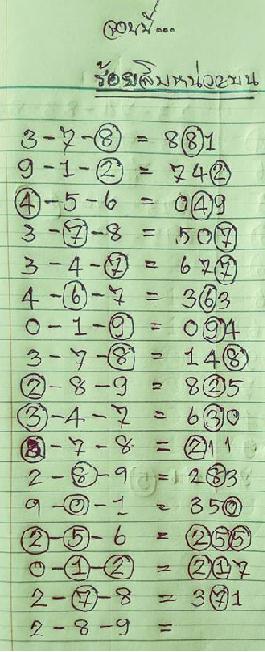 ร้อยสิบหน่วยบน
3-7-8 = 881
9-1-2 = 742
4-5-6 = 049
3-7-8 = 507
3-4-7 = 677
4-6-7 = 363
0-1-9 = 094
3-7-8 = 148
2-8-9 = 825
3-4-7 = 630
-7-8 = 211
2-8-9 = 283
9-0-1 = 350
2-5-6 = 255
0-1-2 = 217
2-7-8 = 371
2-8-9 =